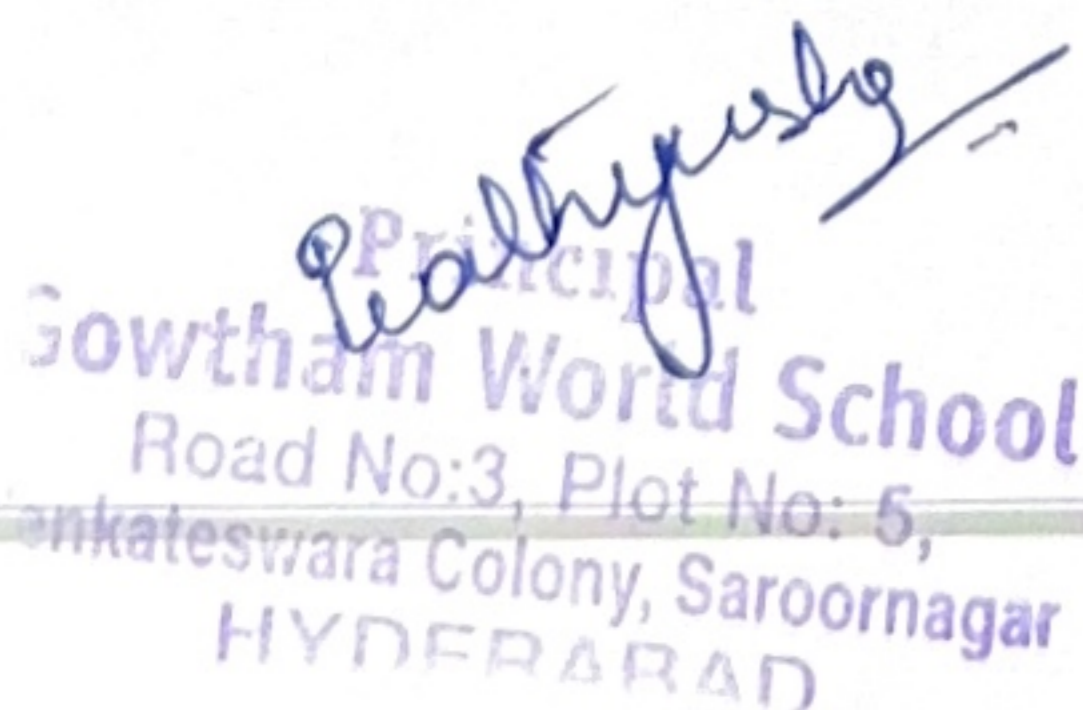 Principal
Gowtham World School
Road No:3, Plot No: 5,
enkateswara Colony, Saroornagar
HYDERABAD